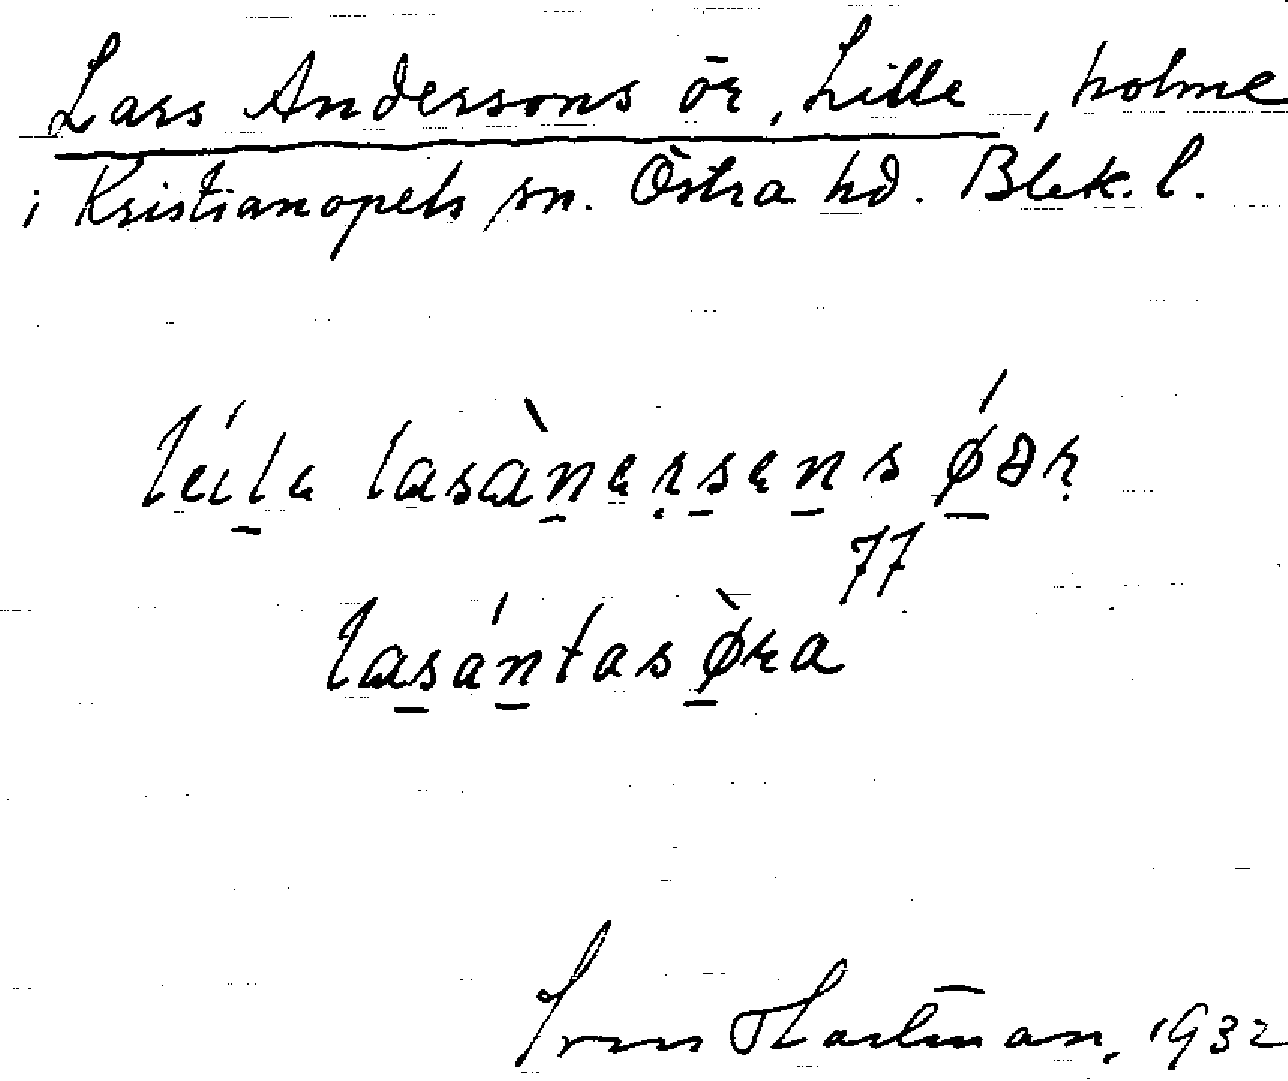 Lars Anderssons ör, Lille, holme
i Kristianopels sn. Östra hd. Blek. l.
lasàneṛsens
77
lasántas øra
Hartman, 1932